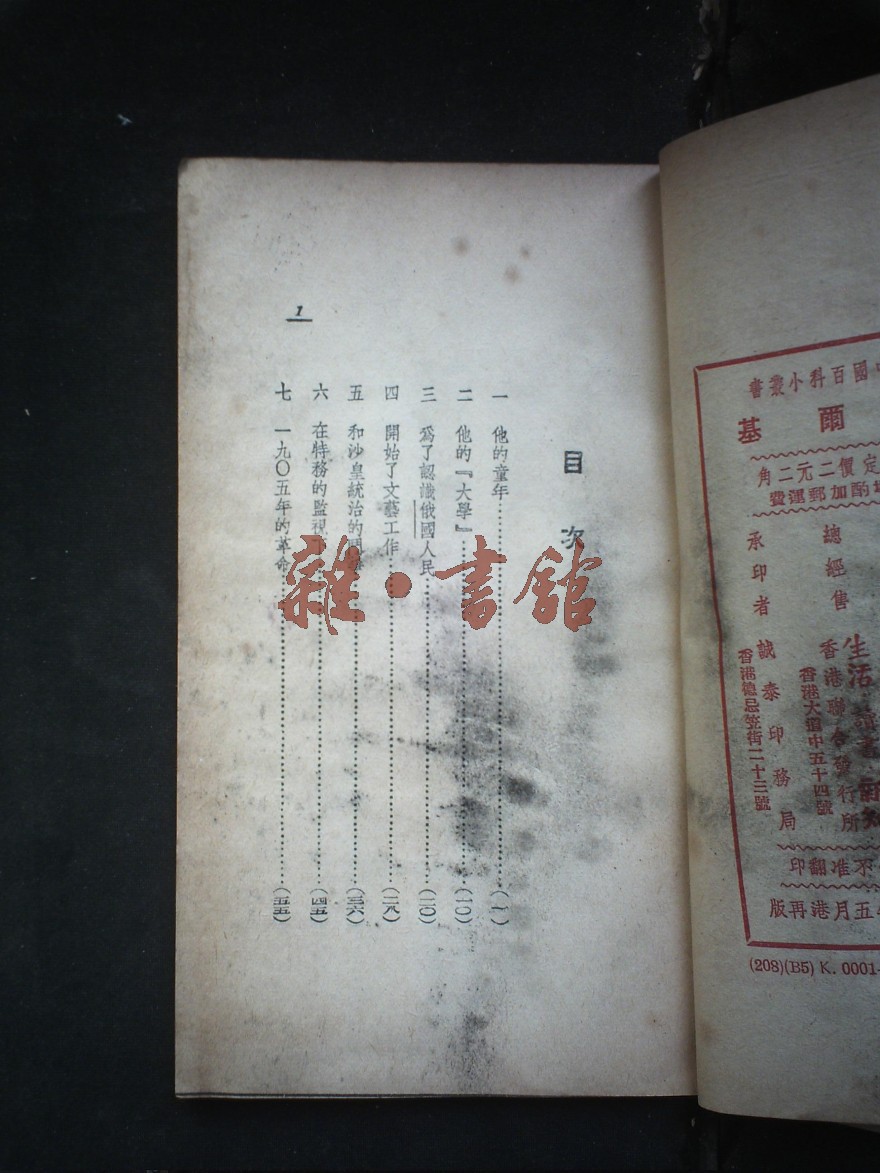 目次
一 他的童年……(一)
二 他的『大學』……(一〇)
三 爲了認識俄國人民……(二〇)
四 開始了文藝工作……(二八)
五 和沙皇統治的……(三六)
六 在特務的監視……(四五)
七 一九〇五年的革命……(五五)
1
雜·書館
國百科小叢書
爾基
定價二元二角
酌加郵運費
總經售
生活
香港聯合發行所
香港大道中五十四號
承印者
誠泰印務局
香港德忌笠街二十三號
不准翻印
五月港再版
(208)(B5) K. 0001-